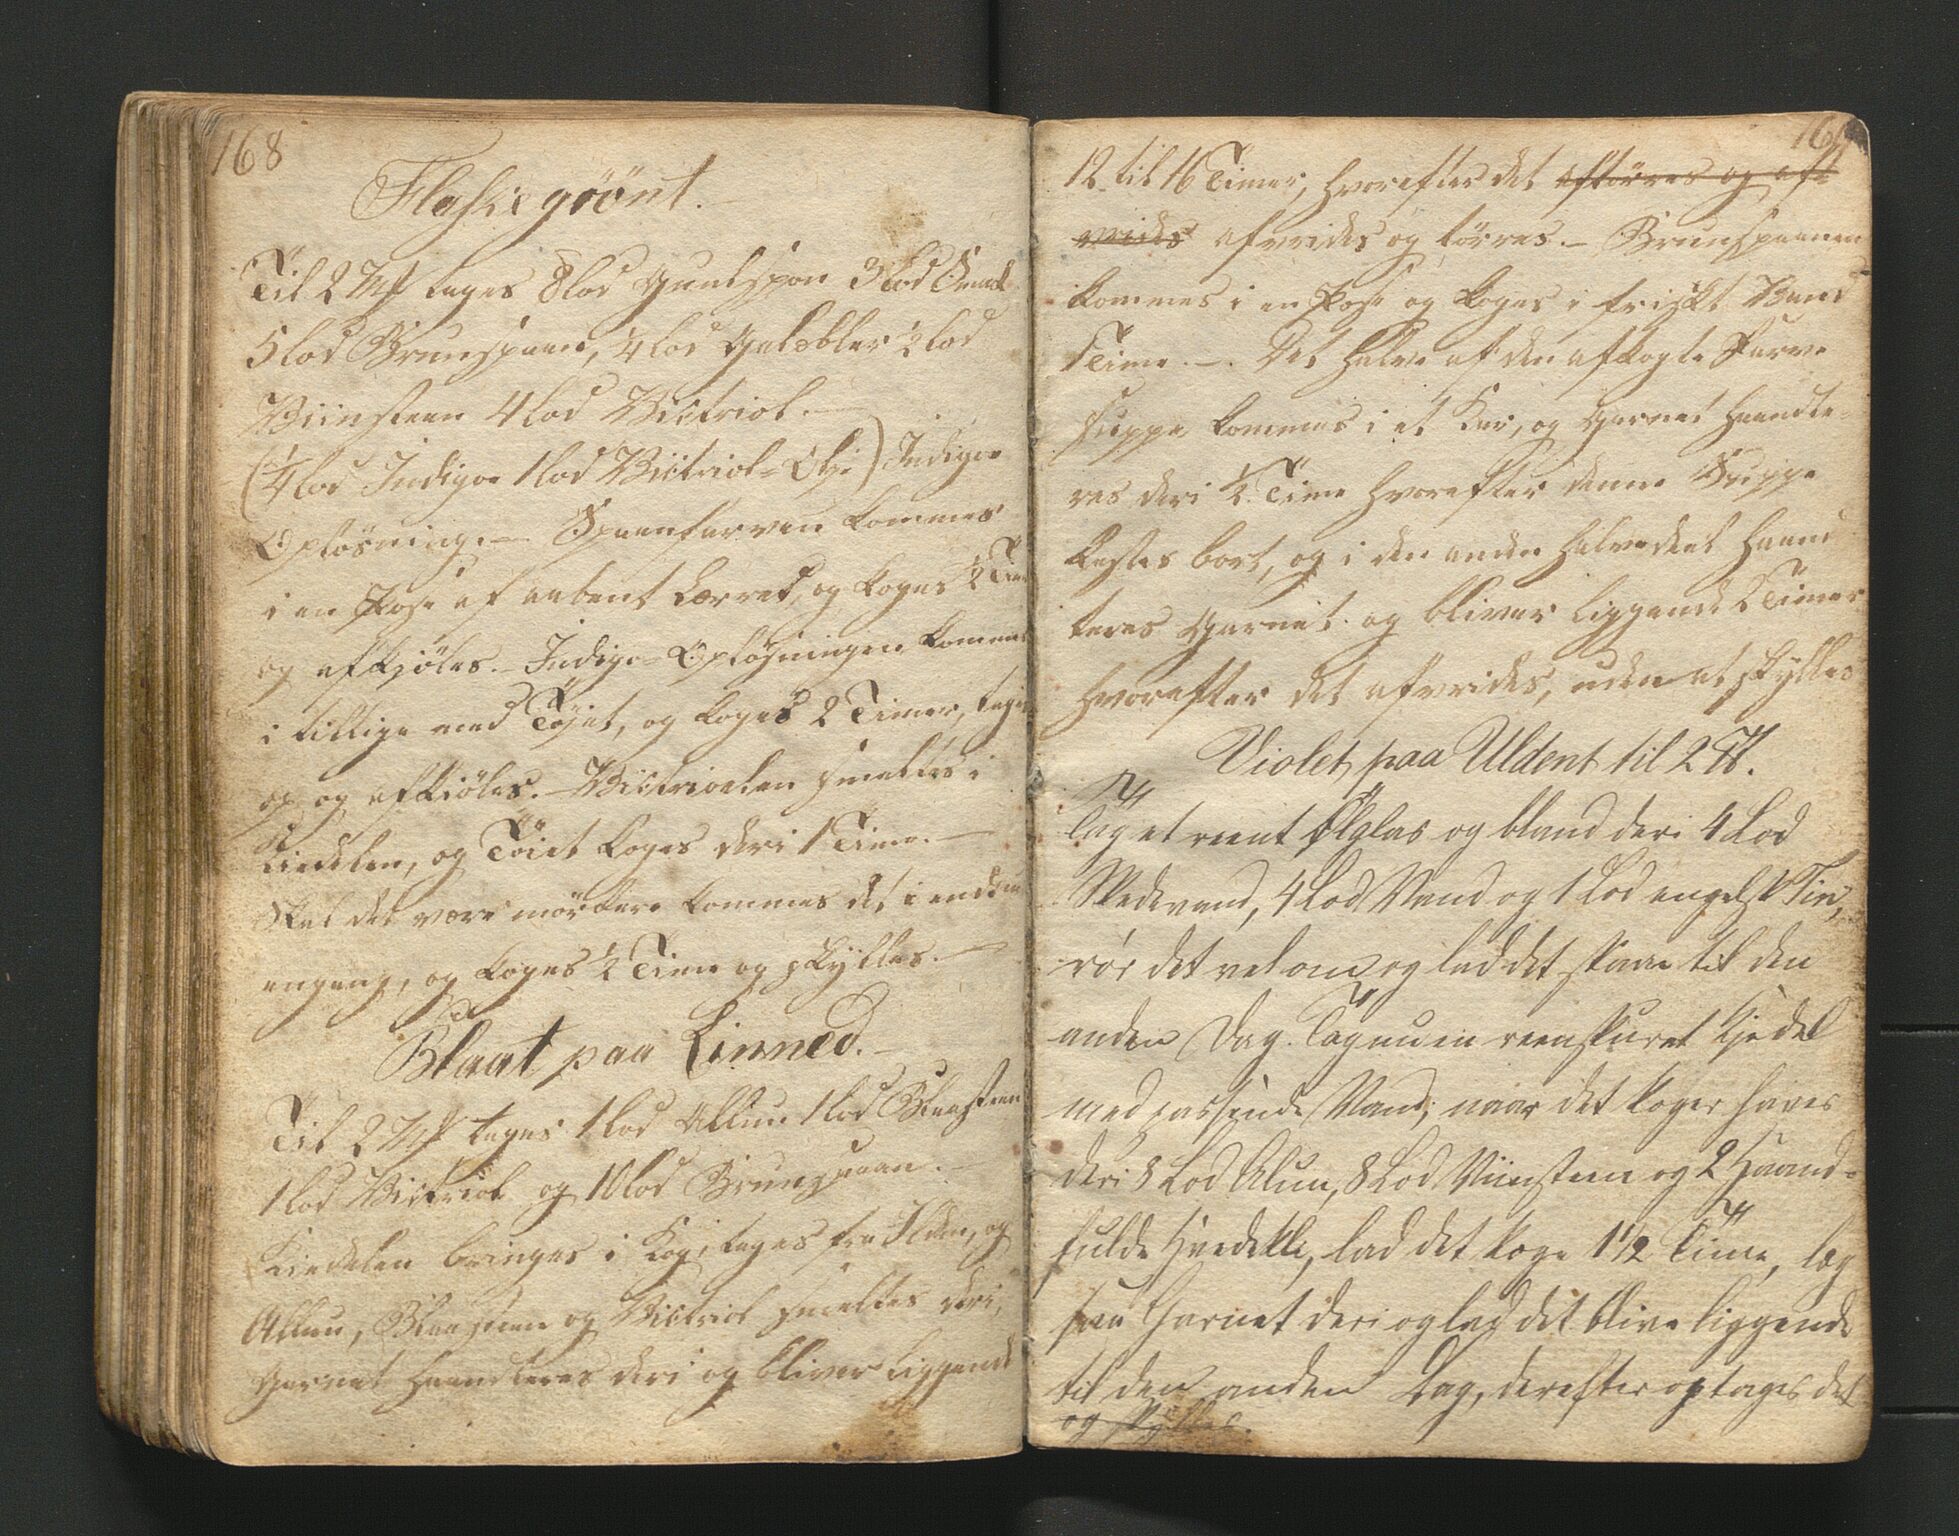 168
Flaskegröönt.
Til 2 Mk tages 8 lod Guulspon 3 lod Smak
5 lod Brunspaan, 4 lod Galæbler ½ lod
Viinsteen 4 lod Victriol. —
(¼ lod Indigoe 1 lod Victriol-Olje) Indigoe
Opløsning. — Spaanfarven kommes
i en Pose af aabent Lærred, og koges ½ Time
og afkjöles. — Indigo-Opløsningen kommes
i tillige med Töjet, og koges 2 Timer, tages
op og afkiöles. — Victriolen smeltes i
Kiedelen, og Töiet koges deri 1 Time. —
Skal det være mörkere kommes det i endnu
engang, og koges ½ Time og skylles. —
Blaat paa Linned. —
Til 2 Mk tages 1 lod Allun 1 lod Blaasteen
1 lod Victriol og 10 lod Brunspaan. —
Kiedelen bringes i Kog, tages fra Ilden, og
Allun, Blaasteen og Victriol smeltes deri,
Garnet haandteres deri og bliver liggende
169
12 til 16 Timer, hvorefter det aftörres og af-
vrides afvrides og törres. — Brunspaanen
kommes i en Pose og koges i friskt Vand
1 Time. —. Det halve af den afkogte Farve
suppe kommes i et Kar, og Garnet haandte-
res deri ½ Time hvorefter denne Suppe
kastes bort, og i den anden halvedeel haand
teres Garnet og bliver liggende 2 Timer
hvorefter det afvrides, uden at skylles
Violet paa Uldent til 2 ℔.
Tag et reent Ølglas og bland deri 4 Lod
Skedevand, 4 Lod Vand og 1 Lod engelsk Tin,
rör det vel om og lad det staae til den
anden Dag. Tag nu en reenskuret Kjedel
med passende Vand; naar det koger haves
deri 8 Lod Alun, 8 Lod Viinsteen og 2 Haand-
fulde Hvedeklie, lad det koge 1½ Time, læg
saa Garnet deri og lad det blive liggende
til den anden Dag, derefter optages det
og skylles.